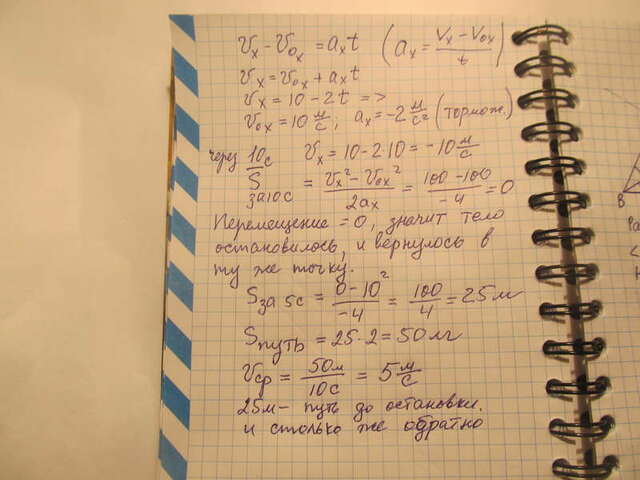 Vx - V0x = axt (ax = (Vx - V0x)/t)
Vx = V0x + axt
Vx = 10 - 2t =>
V0x = 10 м/с; ax = -2 м/с² (тормож.)
через 10с Vx = 10 - 2·10 = -10 м/с
S за 10с = (Vx² - V0x²)/2ax = (100 - 100)/-4 = 0
Перемещение = 0, значит тело
остановилось, и вернулось в
ту же точку.
S за 5с = (0 - 10²)/-4 = 100/4 = 25м
Sпуть = 25·2 = 50м
Vср = 50м/10с = 5 м/с
25м - путь до остановки.
и столько же обратно
В